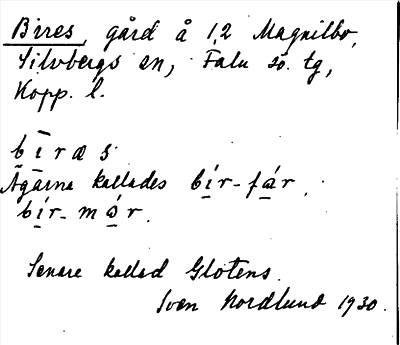 Bires, gård å 1,2 Magnilbo,
Silvbergs sn, Falu sö. tg,
Kopp. l.
bīræs
Ägarna kallades bír-fár,
bír-mór.
Senare kallad Glotens.
Sven Nordlund 1930.